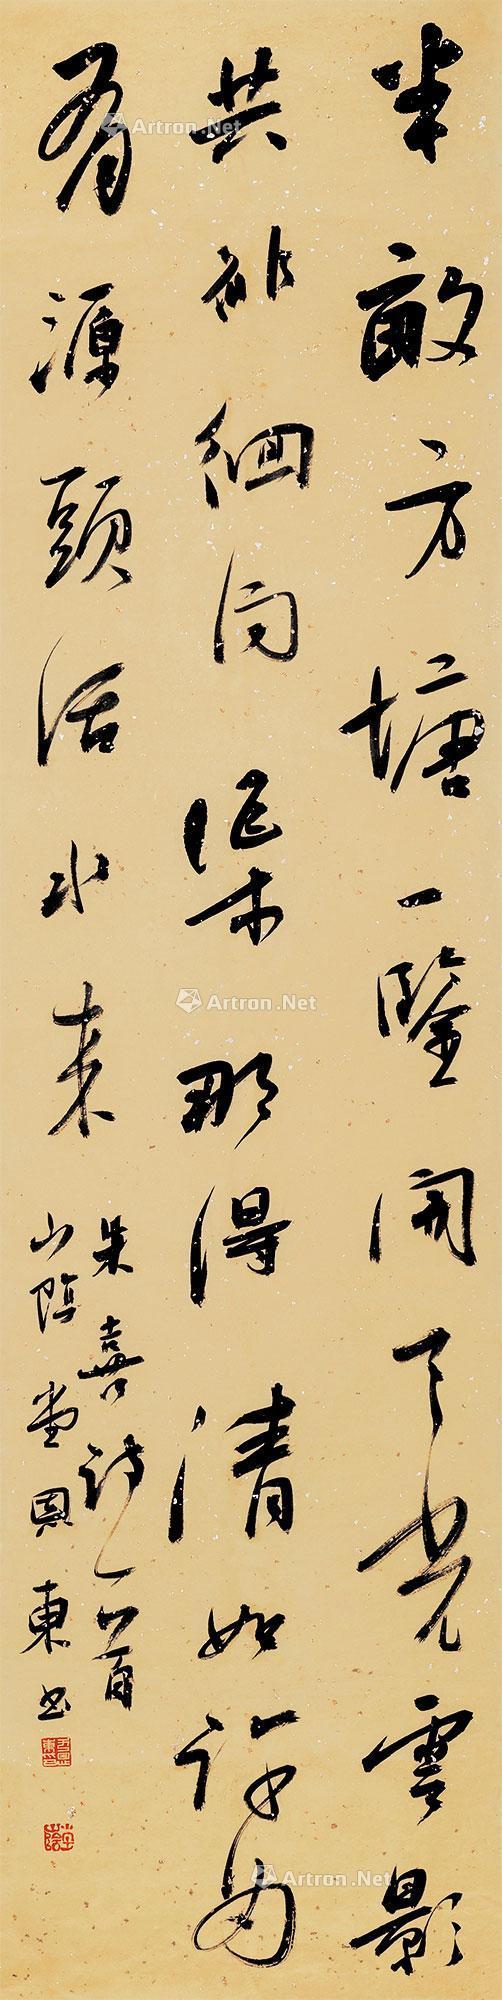 半畝方塘一鑒開天光雲影
共徘徊问渠那得清如许为
有源頭活水来
朱熹诗一首
山阴恩東书
Artron.Net
Artron.Net
Artron.Net